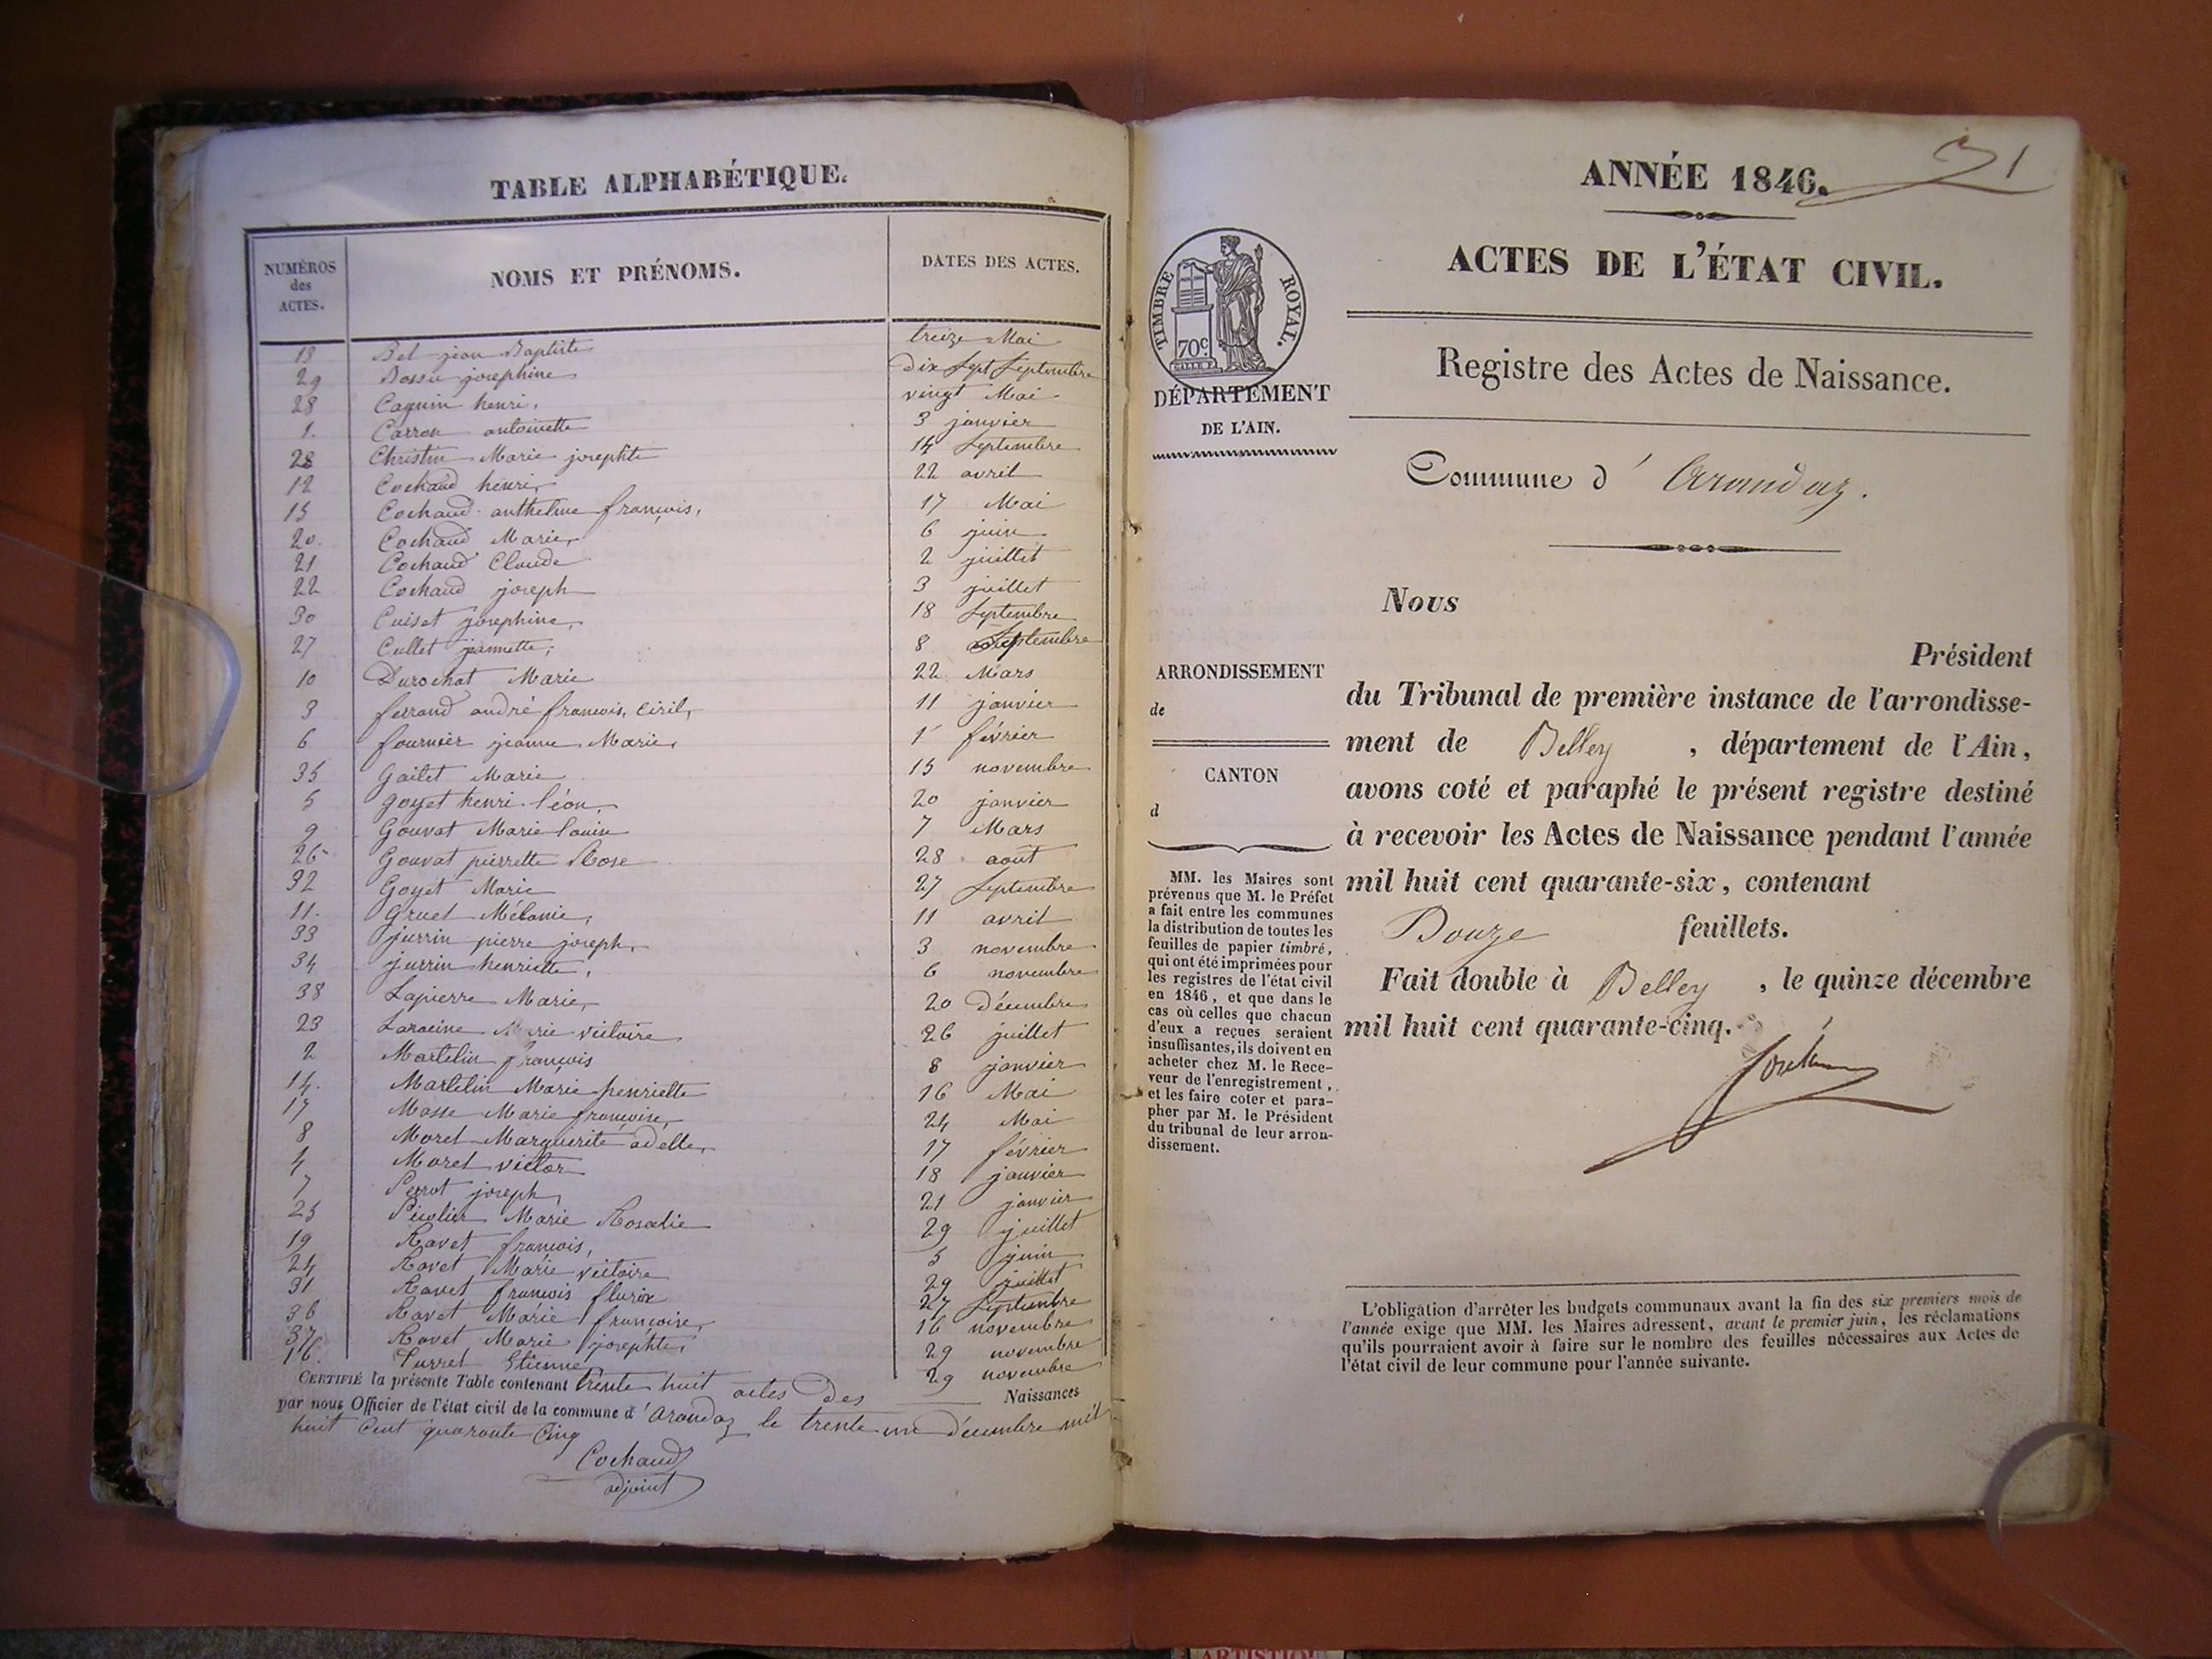 TABLE ALPHABÉTIQUE.
NUMÉROS des ACTES.
NOMS ET PRÉNOMS.
DATES DES ACTES.
13 Bel jean Baptiste treize Mai
29 Bossu josephine dix Sept Septembre
28 Caguin henri, vingt Mai
1. Carron antoinette 3 janvier
28 Christin Marie josephte 14 Septembre
12 Cochaud henri, 22 avril
15 Cochaud anthelme françois, 17 Mai
20. Cochaud Marie, 6 juin
21 Cochaud Claude 2 juillet
22 Cochaud joseph 3 juillet
30 Cuiset josephine, 18 Septembre
27 Cullet jeannette, 8 Septembre
10 Durochat Marie 22 Mars
3 ferrand andré françois, Ciril, 11 janvier
6 fournier jeanne Marie, 1 février
35 Gailet Marie 15 novembre
5 goyet henri léon, 20 janvier
9 Gouvat Marie louise 7 Mars
26 Gouvat pierrette Rose 28 août
32 Goyet Marie 27 Septembre
11. Gruel Mélanie, 11 avril
33 jurrin pierre joseph, 3 novembre
34 jurrin henriette, 6 novembre
38 Lapierre Marie, 20 Décembre
23 Laracine Marie victoire 26 juillet
2 Martelin françois 8 janvier
14. Martelin Marie henriette 16 Mai
17 Masse Marie françoise, 24 Mai
8 Morel Marguerite adelle, 17 février
4 Morel victor 18 janvier
7 Perrot joseph, 21 janvier
25 Marie Rosalie 29 juillet
19 Ravet françois, 5 juin
24 Ravet Marie victoire 29 juillet
31 Ravet françois flurix 27 Septembre
36 Ravet Marie françoise, 16 novembre
37 Ravet Marie josephte, 29 novembre
16. Turrel Etienne 29 novembre
CERTIFIÉ la présente Table contenant trente huit actes des Naissances
par nous Officier de l'état civil de la commune d'arandaz le trente un décembre mil
huit Cent quarante Cinq
Cochaud
adjoint
21
ANNÉE 1846.
ACTES DE L'ÉTAT CIVIL.
TIMBRE ROYAL.
70c.
DÉPARTEMENT
DE L'AIN.
Registre des Actes de Naissance.
Commune d'Arandaz.
Nous
Président
ARRONDISSEMENT
de
du Tribunal de première instance de l'arrondisse-
ment de Belley, département de l'Ain,
CANTON
d
avons coté et paraphé le présent registre destiné
à recevoir les Actes de Naissance pendant l'année
mil huit cent quarante-six, contenant
Douze feuillets.
Fait double à Belley, le quinze décembre
mil huit cent quarante-cinq.
MM. les Maires sont
prévenus que M. le Préfet
a fait entre les communes
la distribution de toutes les
feuilles de papier timbré,
qui ont été imprimées pour
les registres de l'état civil
en 1846, et que dans le
cas où celles que chacun
d'eux a reçues seraient
insuffisantes, ils doivent en
acheter chez M. le Rece-
veur de l'enregistrement,
et les faire coter et para-
pher par M. le Président
du tribunal de leur arron-
dissement.
L'obligation d'arrêter les budgets communaux avant la fin des six premiers mois de
l'année exige que MM. les Maires adressent, avant le premier juin, les réclamations
qu'ils pourraient avoir à faire sur le nombre des feuilles nécessaires aux Actes de
l'état civil de leur commune pour l'année suivante.